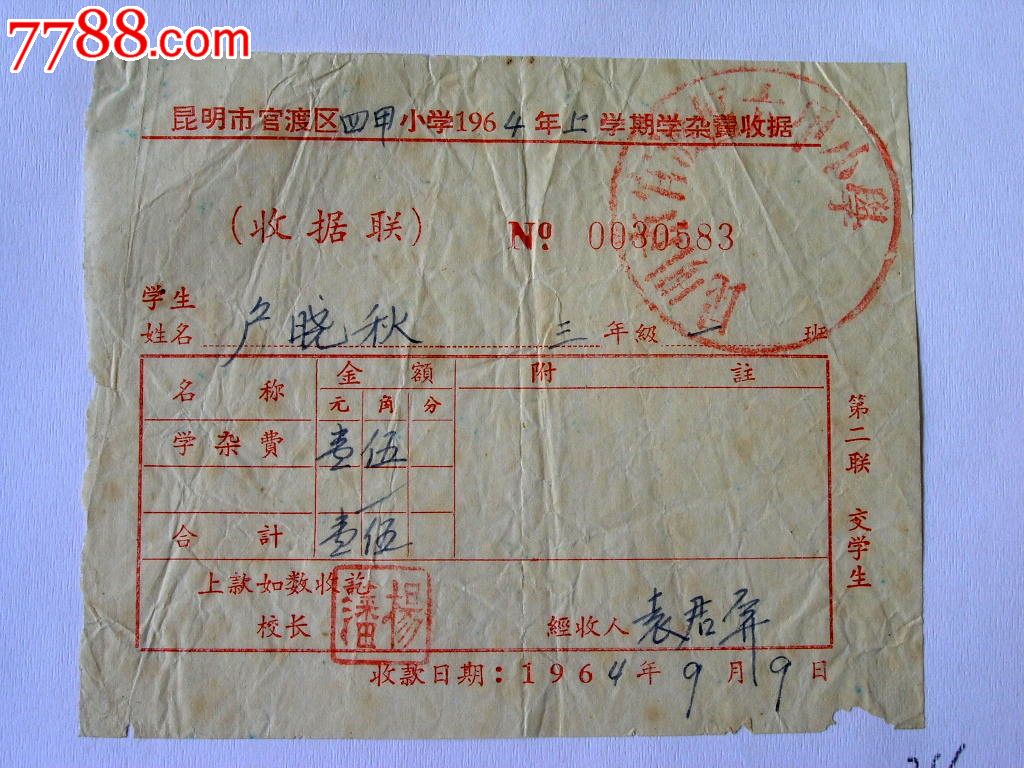 7788.com 热线
昆明市官渡区四甲小学1964年上学期学杂費收据
(收据联) № 0030583
学生
姓名 卢晓秋 三年級一班
名称 金額 附註
元 角 分
学杂費 壹 伍
合計 壹 伍
上款如数收訖
校长 楊潘
經收人 袁君屏
收款日期:1964年9月19日
第二联 交学生